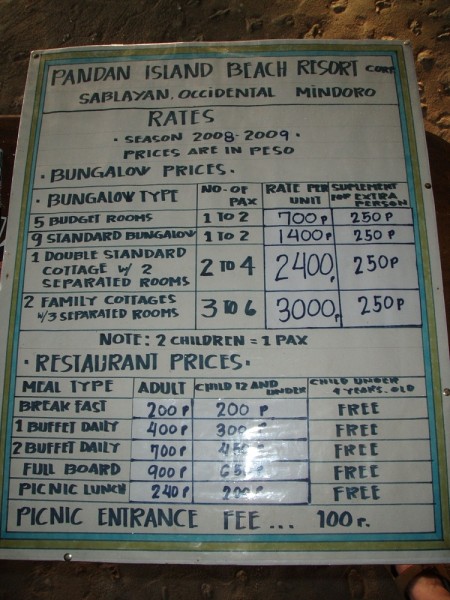 PANDAN ISLAND BEACH RESORT CORP
SABLAYAN, OCCIDENTAL MINDORO
RATES
· SEASON 2008-2009 ·
PRICES ARE IN PESO
· BUNGALOW PRICES ·
· BUNGALOW TYPE NO. OF PAX RATE PER UNIT SUPLEMENT EXTRA PERSON
5 BUDGET ROOMS 1 TO 2 700 P 250 P
9 STANDARD BUNGALOW 1 TO 2 1400 P 250 P
1 DOUBLE STANDARD COTTAGE W/ 2 SEPARATED ROOMS 2 TO 4 2400 P 250 P
2 FAMILY COTTAGES W/3 SEPARATED ROOMS 3 TO 6 3000 P 250 P
NOTE: 2 CHILDREN = 1 PAX
· RESTAURANT PRICES ·
MEAL TYPE ADULT CHILD 12 AND UNDER CHILD UNDER 4 YEARS. OLD
BREAK FAST 200 P 200 P FREE
1 BUFFET DAILY 400 P 300 P FREE
2 BUFFET DAILY 700 P FREE
FULL BOARD 900 P FREE
PICNIC LUNCH 240 P 200 P FREE
PICNIC ENTRANCE FEE ... 100 P.